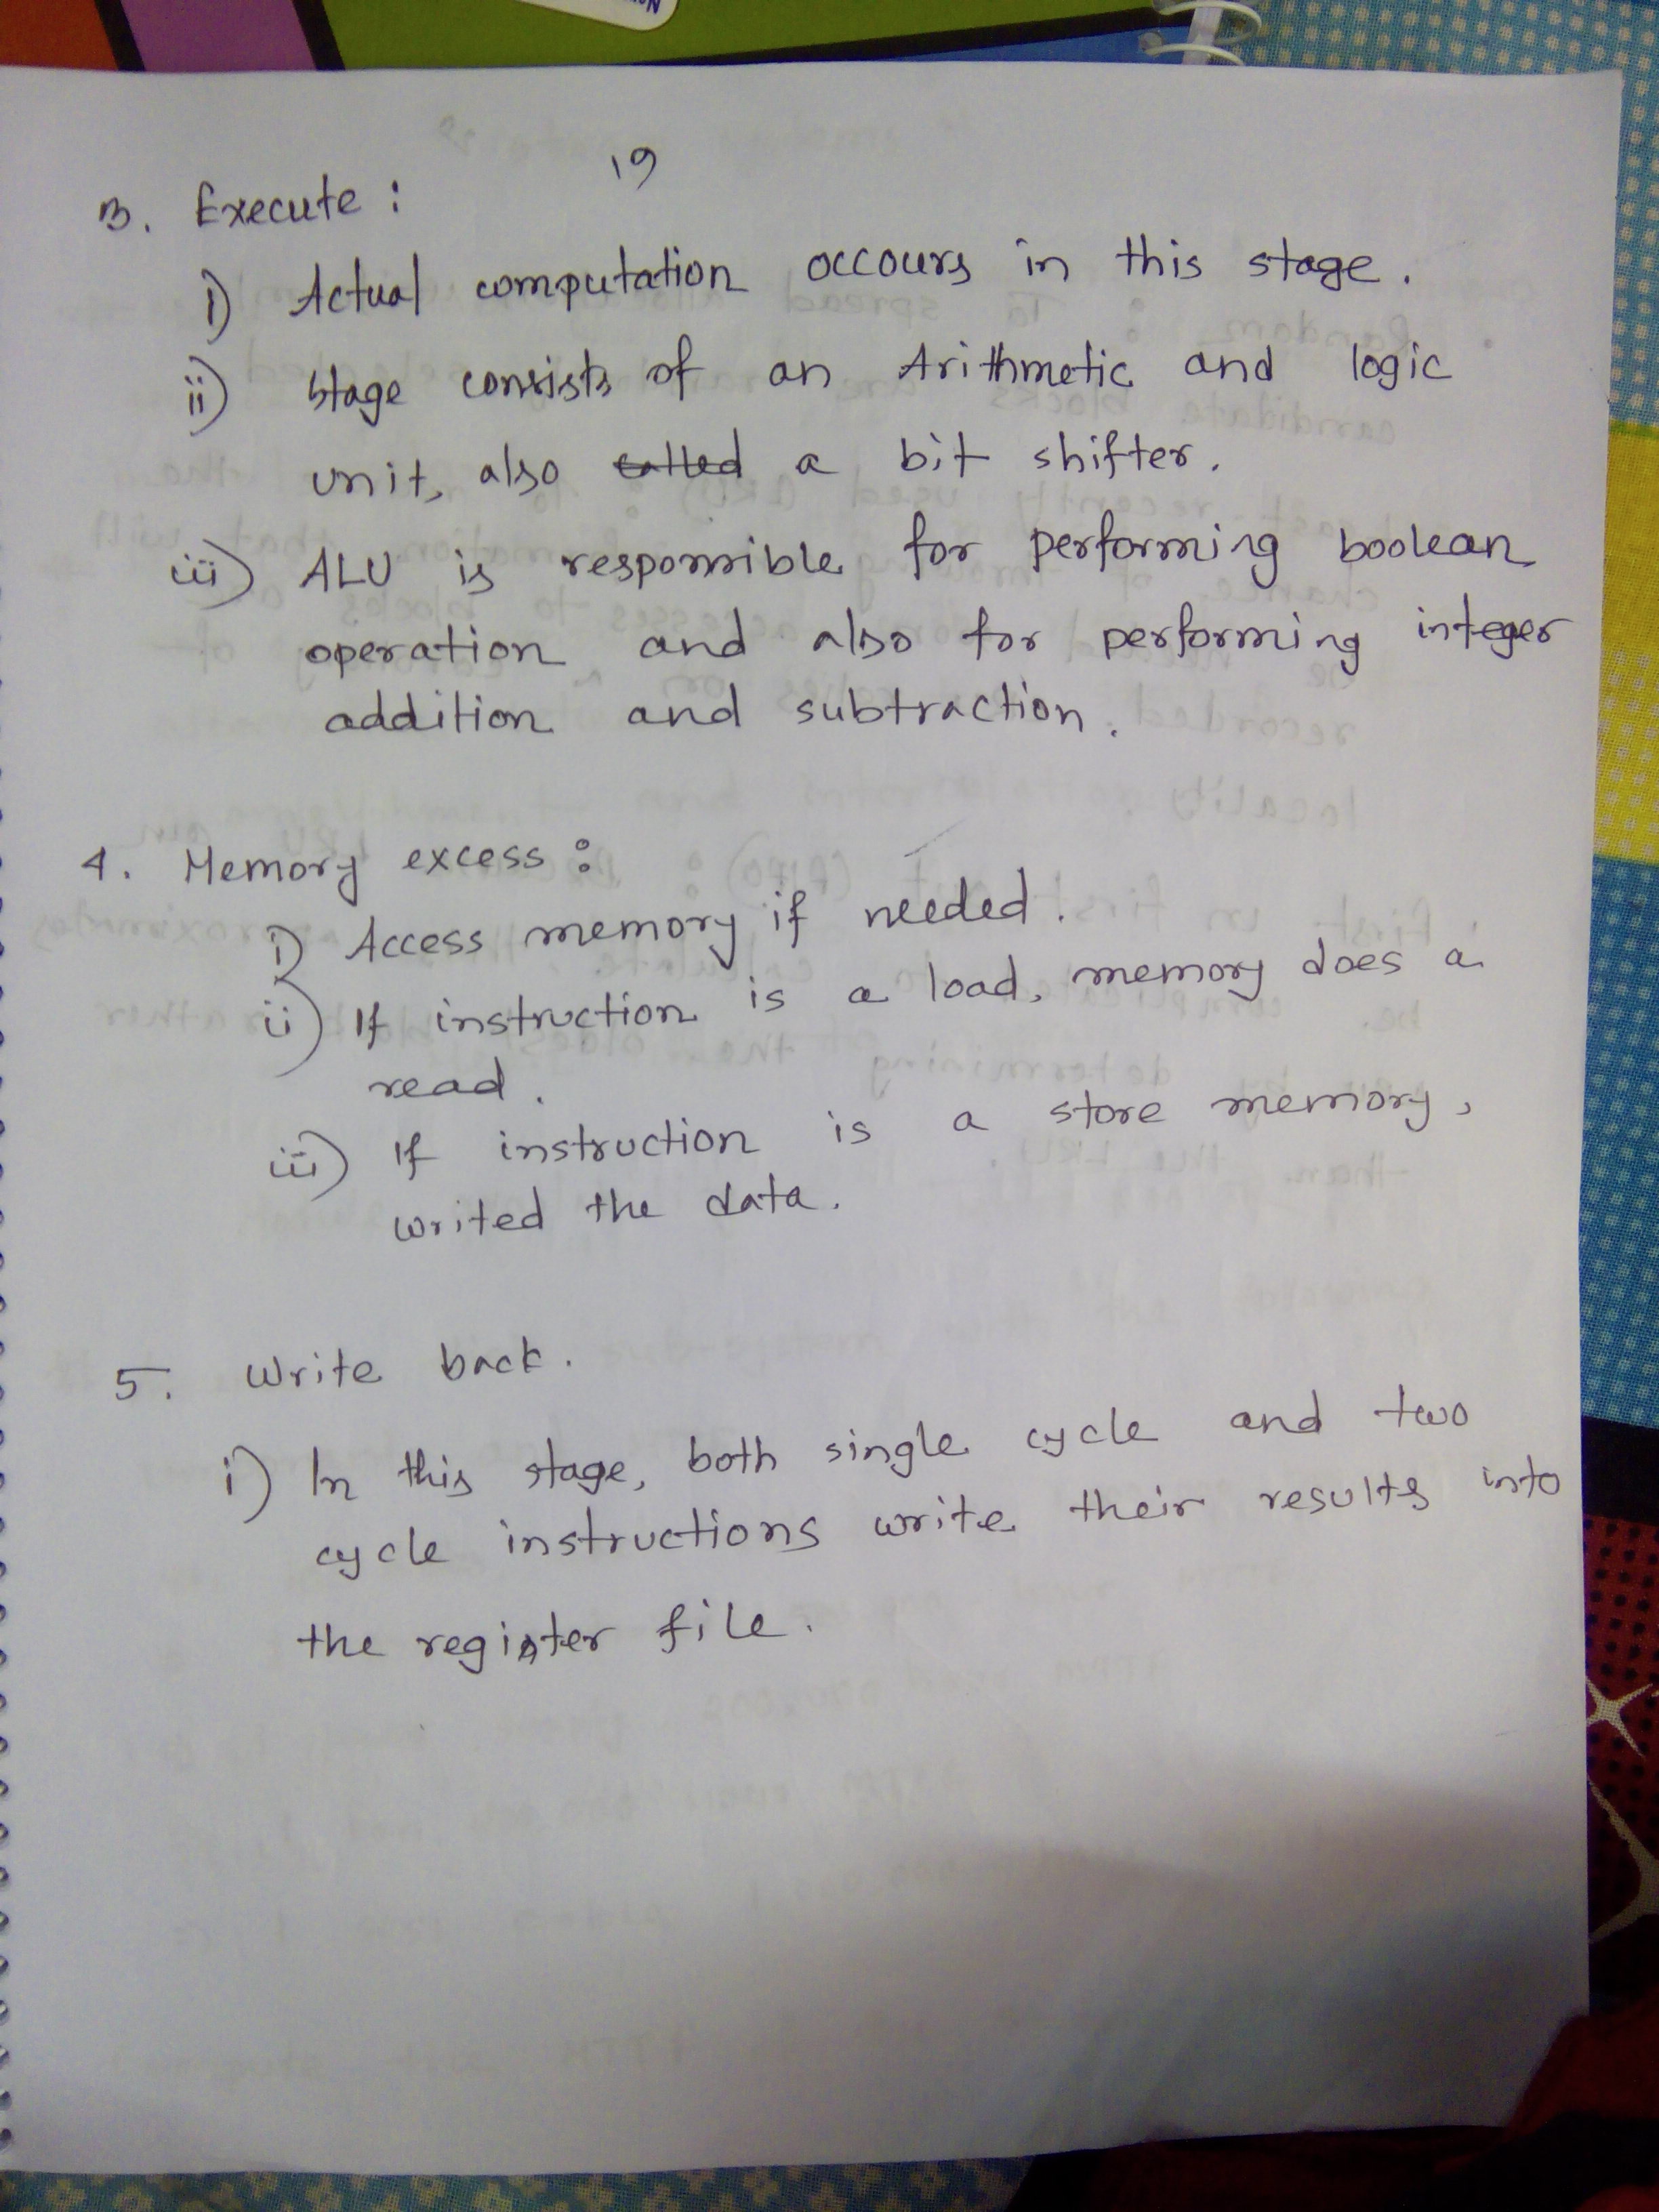 19
3. Execute :
i) Actual computation occours in this stage.
ii) Stage consists of an Arithmetic and logic
unit, also called a bit shifter.
iii) ALU is responsible for performing boolean
operation and also for performing integer
addition and subtraction.
4. Memory excess :
i) Access memory if needed.
ii) If instruction is a load, memory does a
read.
iii) If instruction is a store memory,
writed the data.
5. Write back.
i) In this stage, both single cycle and two
cycle instructions write their results into
the register file.